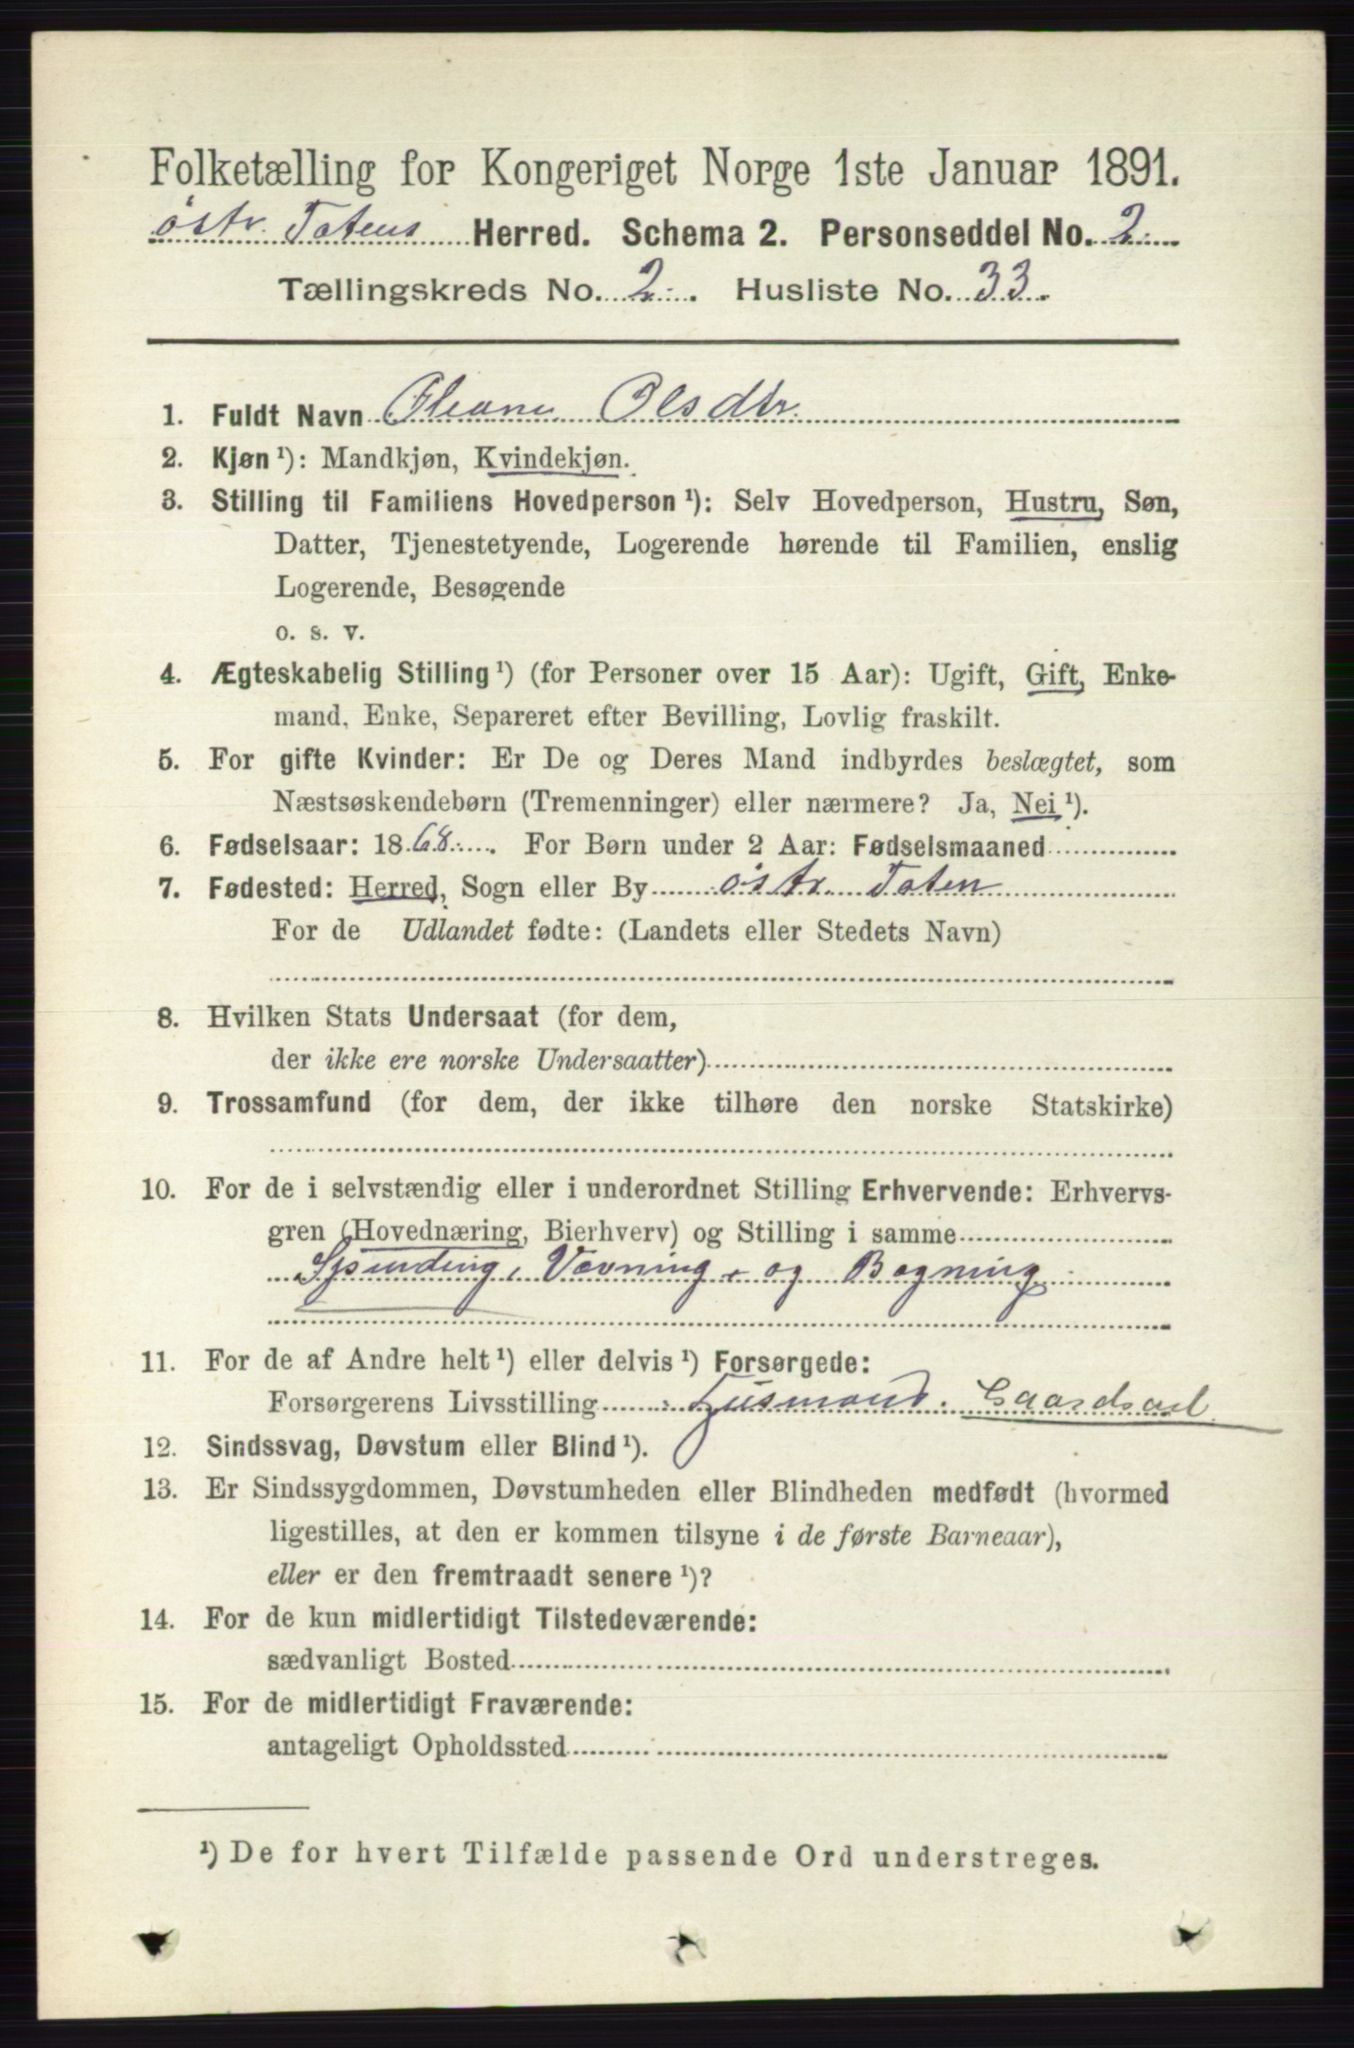 Folketælling for Kongeriget Norge 1ste Januar 1891.
østr. Totens Herred. Schema 2. Personseddel No. 2
Tællingskreds No. 2. Husliste No. 33.
1. Fuldt Navn Oleane Olsdtr.
2. Kjøn ¹): Mandkjøn, Kvindekjøn.
3. Stilling til Familiens Hovedperson ¹): Selv Hovedperson, Hustru, Søn,
Datter, Tjenestetyende, Logerende hørende til Familien, enslig
Logerende, Besøgende
o. s. v.
4. Ægteskabelig Stilling ¹) (for Personer over 15 Aar): Ugift, Gift, Enke-
mand, Enke, Separeret efter Bevilling, Lovlig fraskilt.
5. For gifte Kvinder: Er De og Deres Mand indbyrdes beslægtet, som
Næstsøskendebørn (Tremenninger) eller nærmere? Ja, Nei ¹).
6. Fødselsaar: 1868. For Børn under 2 Aar: Fødselsmaaned
7. Fødested: Herred, Sogn eller By østr. Toten
For de Udlandet fødte: (Landets eller Stedets Navn)
8. Hvilken Stats Undersaat (for dem,
der ikke ere norske Undersaatter)
9. Trossamfund (for dem, der ikke tilhøre den norske Statskirke)
10. For de i selvstændig eller i underordnet Stilling Erhvervende: Erhvervs-
gren (Hovednæring, Bierhverv) og Stilling i samme
Spinding, Vævning, og Bagning
11. For de af Andre helt ¹) eller delvis ¹) Forsørgede:
Forsørgerens Livsstilling Husmand. Gaardsarb
12. Sindssvag, Døvstum eller Blind ¹).
13. Er Sindssygdommen, Døvstumheden eller Blindheden medfødt (hvormed
ligestilles, at den er kommen tilsyne i de første Barneaar),
eller er den fremtraadt senere ¹)?
14. For de kun midlertidigt Tilstedeværende:
sædvanligt Bosted
15. For de midlertidigt Fraværende:
antageligt Opholdssted
¹) De for hvert Tilfælde passende Ord understreges.